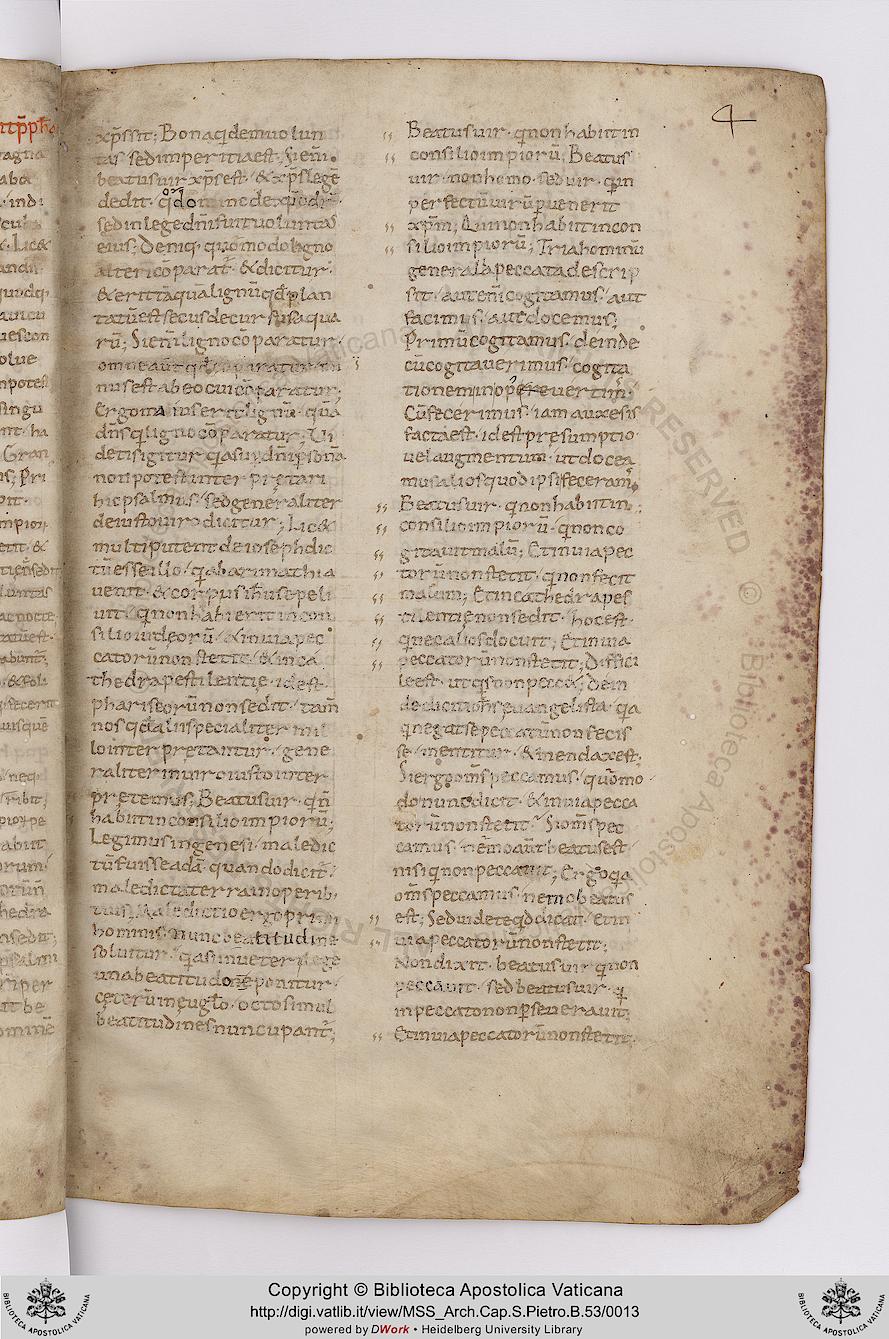 4
xp̄s sit; Bona q̄dem uolun
tas sed imperitia est; Si eni͂
beatus uir xp̄s est· & xp̄s legē
dedit· q̄dom̄o
sed in lege dn̄i fuit uoluntas
eius; Deniq; quomodo ligno
alteri cōparat̄· & dicitur·
& erit tāquā lignū qd̄ plan
tatū est secus decursus aqua
rū; Si eni͂ ligno cōparatur·
omne aut̄ qd̄ cōparatur mi
nus est ab eo cui cōparatur;
Ergo
dn̄s q̄ ligno cōparatur; Ui
detis igitur q̄a sub dn̄i psona
non potest interpr̨tari
hic psalmus· sed generaliter
de iusto uiro dicitur; Lic&
multi putent de ioseph dic
tū esse illo· q̄ ab arimathia
uenit· & corpus ih̄u sepeli
uit· q̄ non habierit in con
silio iudęorū· & in uia pec
catorū non stetit· & in ca
thedra pestilentię· id est
phariseorū non sedit· tam̄
nos q̄a alii specialiter
lo interpretantur· gene
raliter in uiro iusto inter
pr̨temus; Beatus uir· q̄ n̄
habiit in consilio impiorū;
Legimus in genesi· maledic
tū fuisse adā· quando dicit̄·
maledicta terra in operib;
tuis; Maledictio ergo primi
hominis· nunc beatitudine
soluitur· q̄a si in ueteri lege
una beatitudo ponitur·
ceterū in ęuglō· octo simul
beatitudines nuncupant̄;
Beatus uir· q̄ non habiit in
consilio impiorū; Beatus
uir· non homo· sed uir· q̄ in
perfectū uirū peruenerit
xp̄m; Qui non habiit in con
silio impiorū; Tria hominū
generalia peccata descrip
sit· aut eni͂ cogitamus· aut
facimus· aut docemus;
Primū cogitamus· deinde
cū cogitauerimus· cogita
tionem in op̄ere uertim̄;
Cū fecerimus· iam auxesis
facta est· id est presumptio
uel augmentum· ut docea
mus alios quod ipsi feceram̄;
Beatus uir· q̄ non habiit in
consilio impiorū· q̄ non co
gitauit malū; Et in uia pec
torū non stetit· q̄ non fecit
malum; Et in cathedra pes
tilentię non sedit· hoc est·
q̄ nec alios docuit; Et in uia
peccatorū non stetit; Diffici
le est· ut q̄s non pecc&; Dein
de dicit ioh̄s euangelista· q̄a
q̄ negat se peccatū non fecis
se· mentitur· & mendax est;
Si ergo om̄s peccamus· quōmo
do nunc dicit· & in uia pecca
torū non stetit· Si om̄s pec
camus· nemo aut̄ beatus est·
nisi q̄ non peccauit; Ergo q̄a
om̄s peccamus· nemo beatus
est; Sed uidete qd̄ dicat· Et in
uia peccatorū non stetit;
Non dixit· beatus uir q̄ non
peccauit· sed beatus uir· q̄
in peccato non pseuerauit;
Et in uia peccatorū non stetit;
Copyright © Biblioteca Apostolica Vaticana
http://digi.vatlib.it/view/MSS_Arch.Cap.S.Pietro.B.53/0013
powered by DWork • Heidelberg University Library